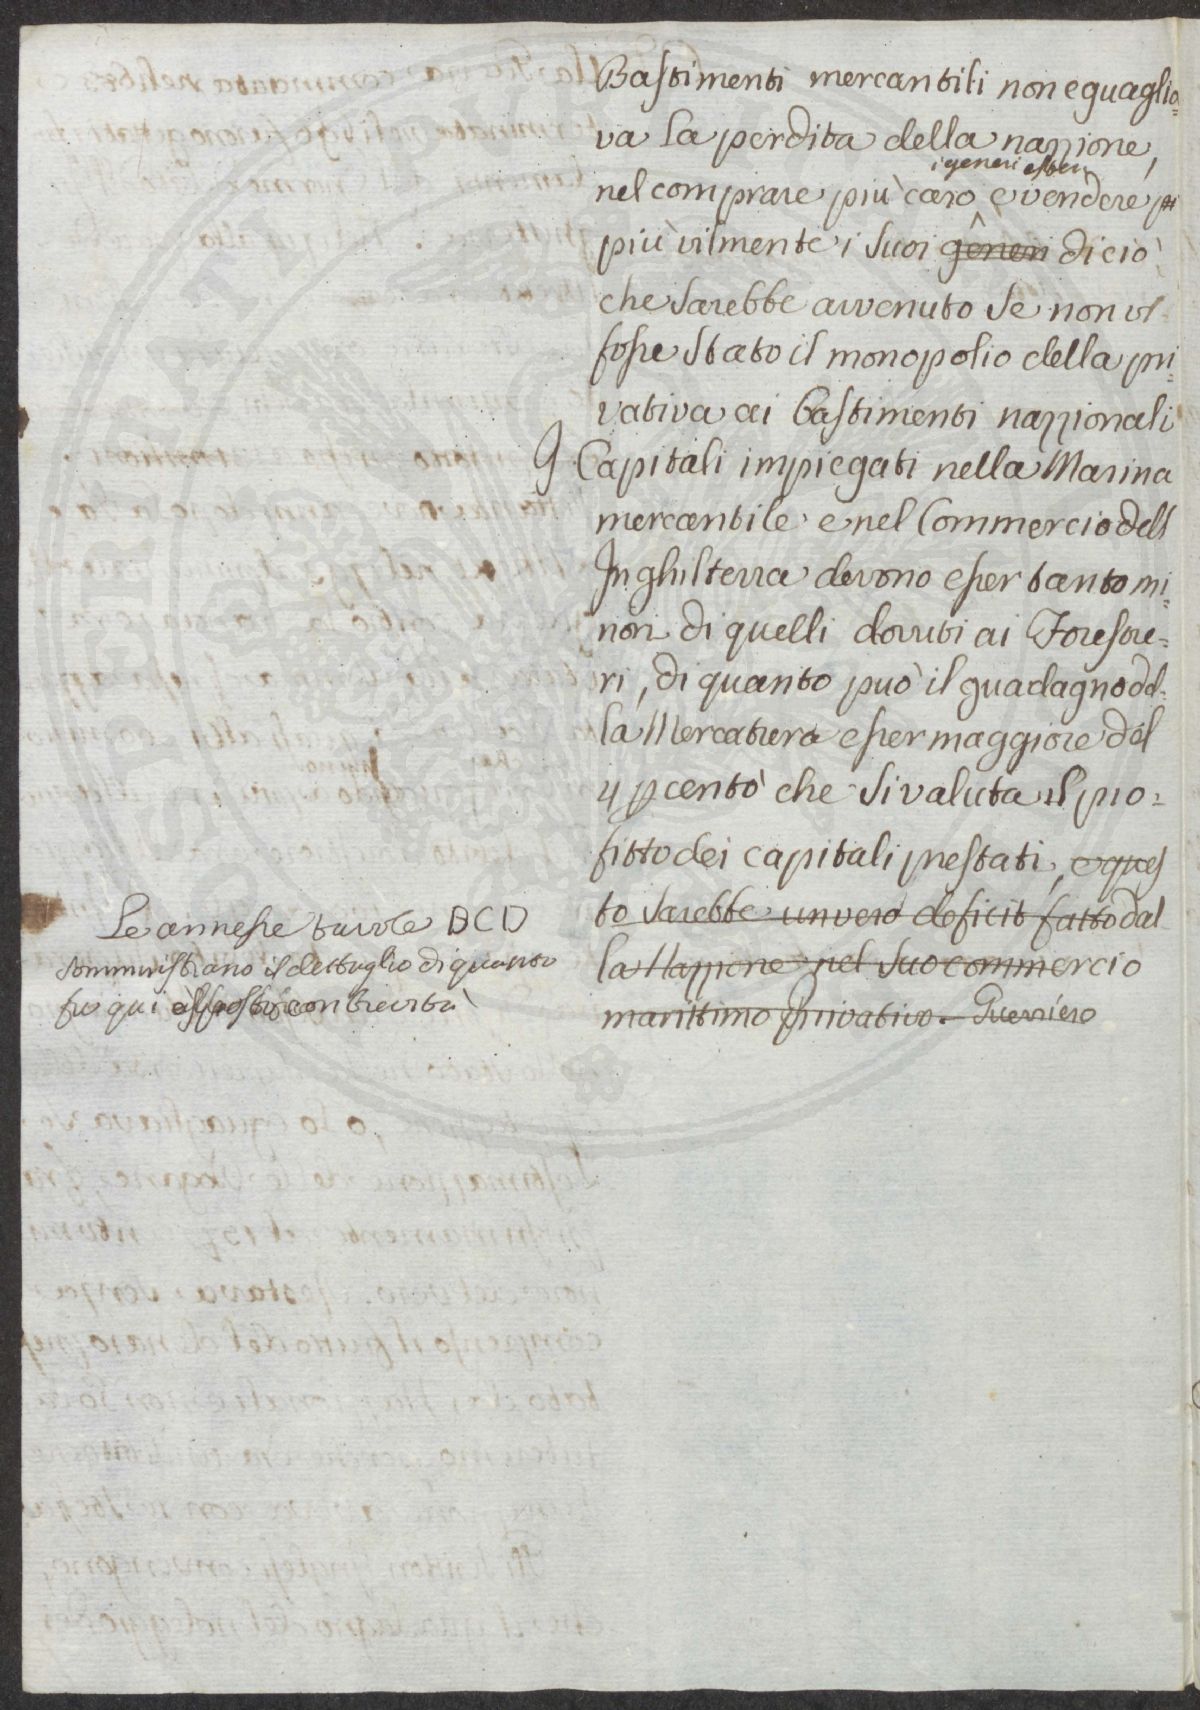 Bastimenti mercantili non eguaglia=
va la perdita della nazzione,
i generi esteri
nel comprare più caro, e vendere
più vilmente i suoi generi di ciò
che sarebbe avvenuto se non vi
fosse stato il monopolio della pri=
vativa ai bastimenti nazzionali
I Capitali impiegati nella Marina
mercantile e nel Commercio dell
Inghilterra devono esser tanto mi=
nori di quelli dovuti ai Forestie=
ri, di quanto può il guadagno del=
la Mercatura esser maggiore del
4 p cento che si valuta il pro=
fitto dei capitali prestati, e ques
to sarebbe un vero deficit fatto dal
la Nazzione nel suo commercio
marittimo privativo. Guerriero
Le annesse tavole B C D
somministrano il dettaglio di quanto
fu qui esposto con brevità